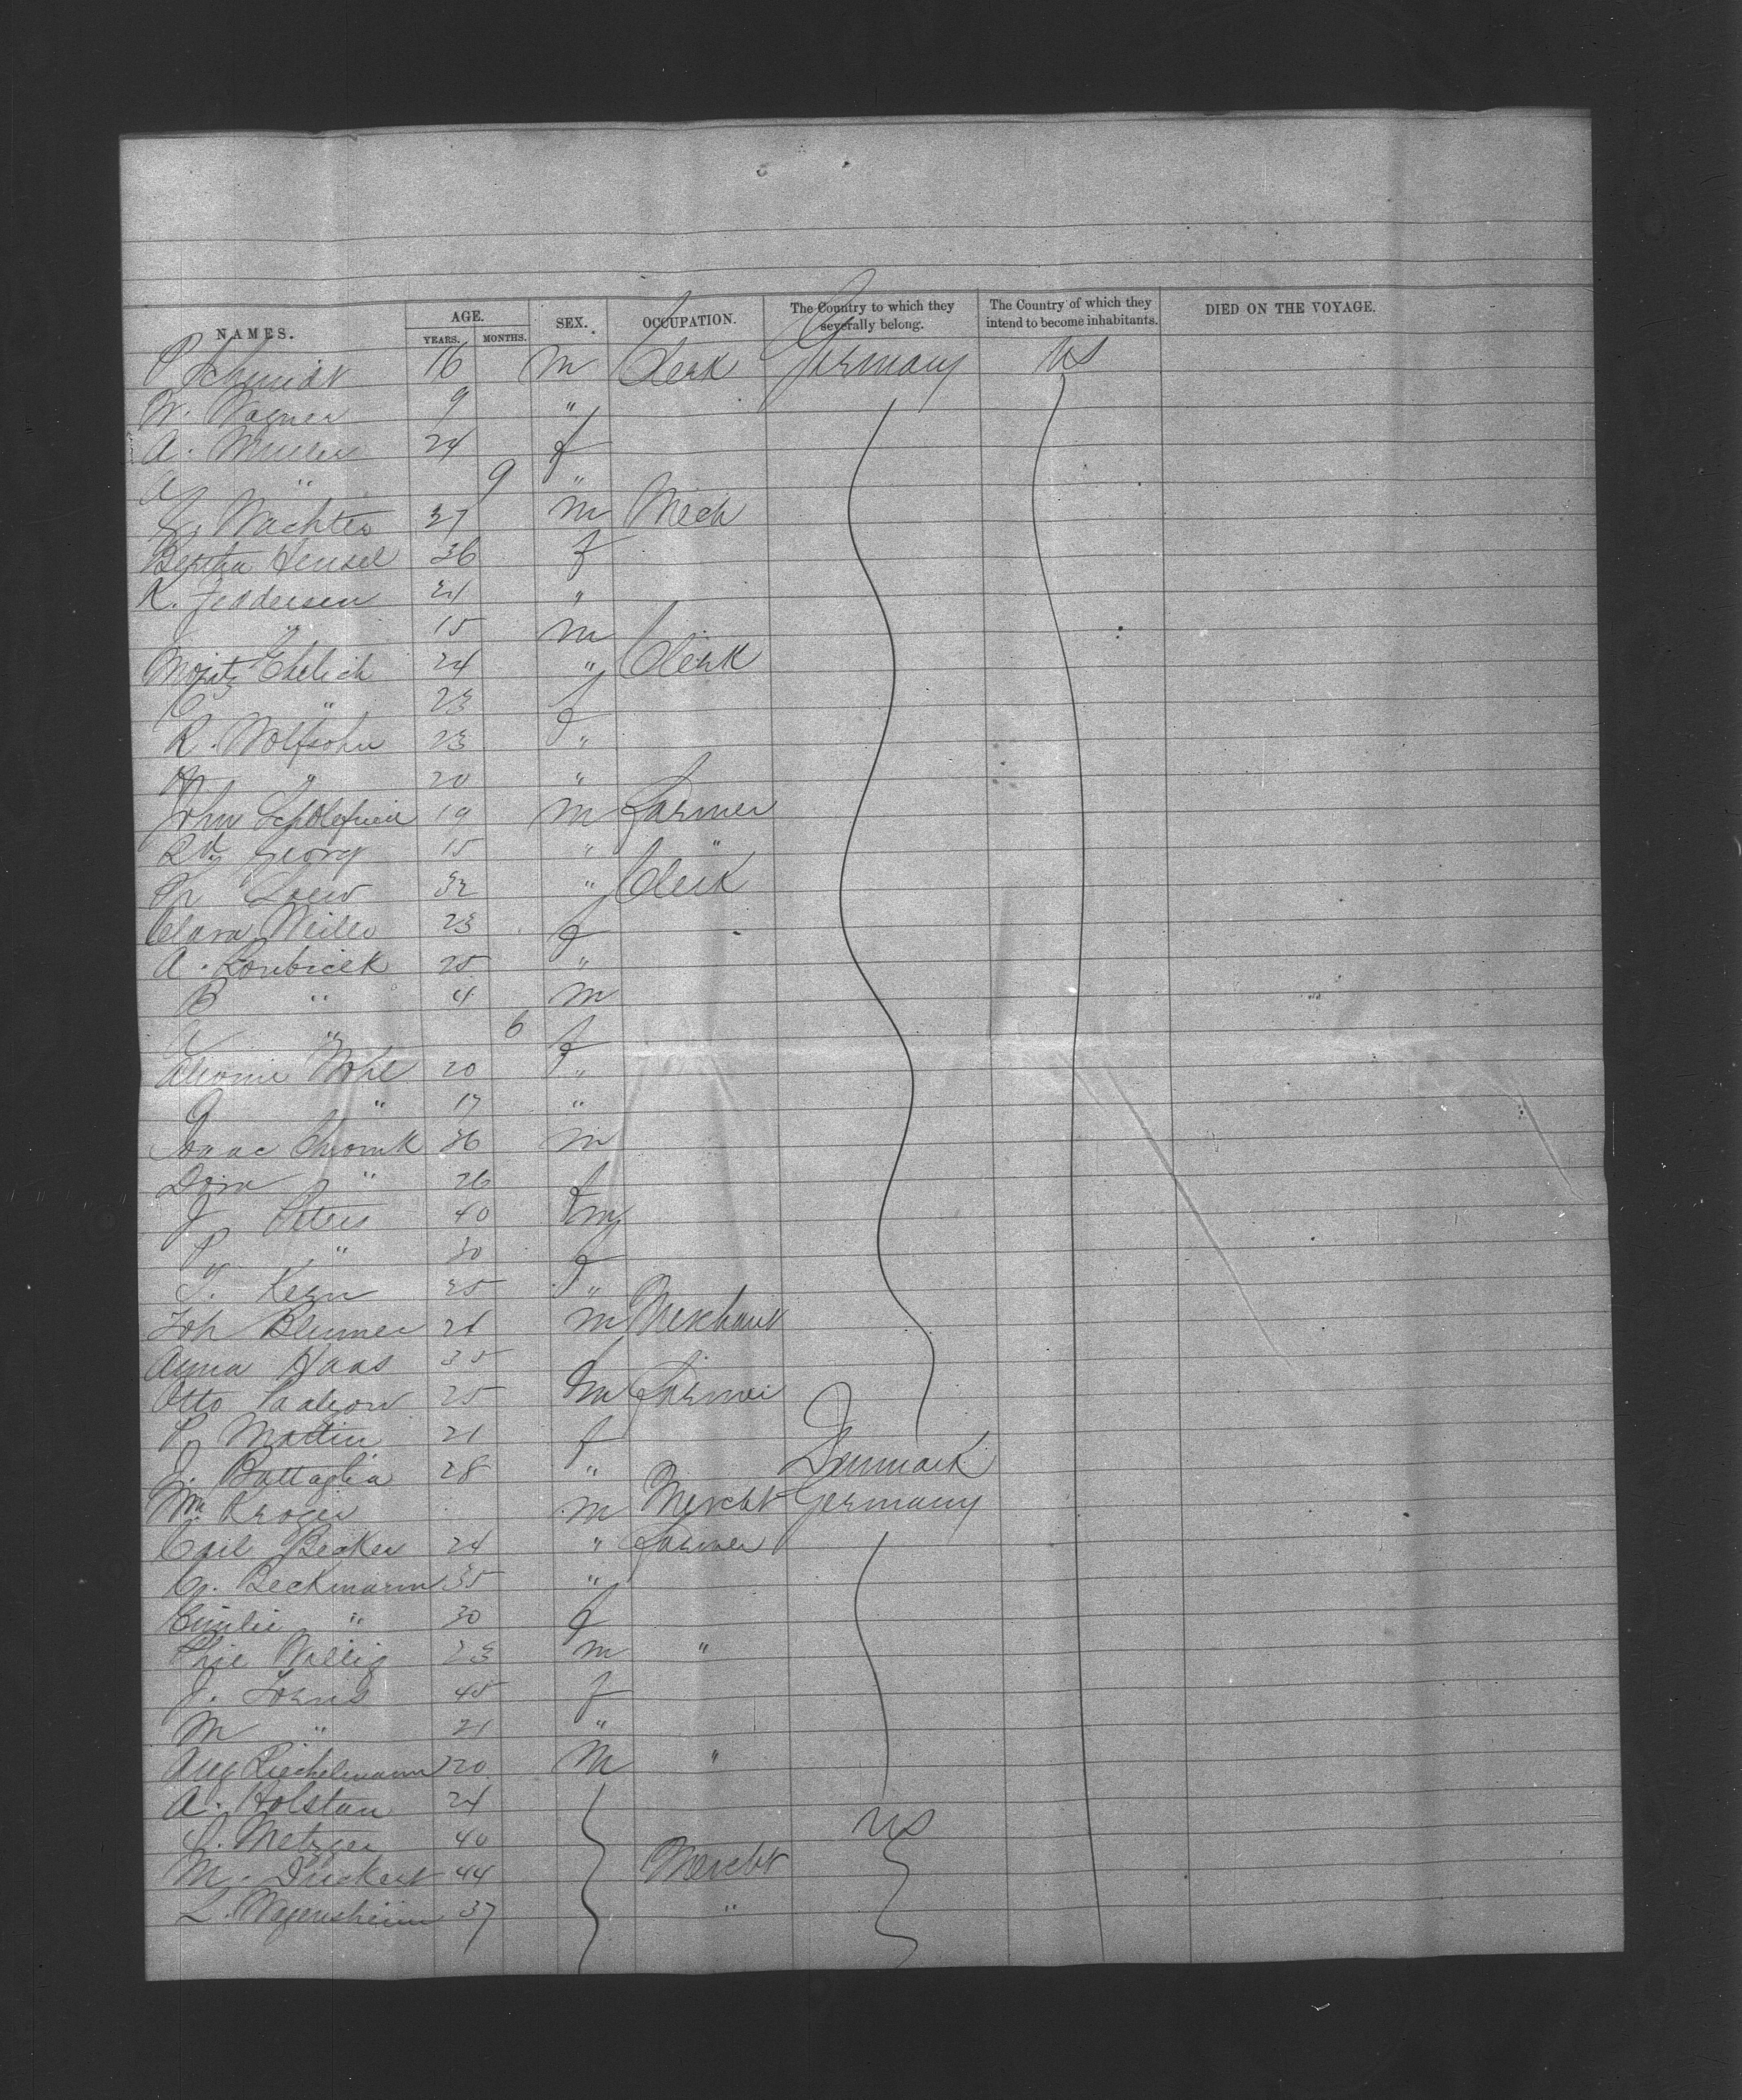 NAMES. AGE. YEARS. MONTHS. SEX. OCCUPATION. The Country to which they severally belong. The Country of which they intend to become inhabitants. DIED ON THE VOYAGE.
P Schmidt 16 m Clerk Germany US
W. Wagner 9 "
A. Muller 24 f
" 9 "
Wachter 37 m Mech
Bertha Hensel 36 f
K. Feddersen 21 "
" 15 m
Moritz Ehrlich 24 " Clerk
C " 23 f
R. Wolfsohn 23 "
" 20 "
John 19 m Farmer
Georg 15 " "
Loew 32 " Clerk
Clara Weiler 23 f
A. Koubicek 25 "
B " 4 m
" 6 f
Wohl 20 "
" 17 "
Isaac 36 m
" 26 f
J Peters 40 m
P " 30 f
Kern 25 "
Joh Blumer 26 m Merchant
Anna Haas 35
Otto 25 m Farmer
P Martin 21 f
Battaglia 28 " Denmark
Wm Kroger m Mercht Germany
Carl Becker 24 " Farmer
C. Beckmann 35 "
Emilie " 30 f
Phil Willig 23 m "
J. Johns 45 f
M " 21 "
Aug Riechelmann 20 m "
A. Holstan 24
S. Metzger 40 US
M. Duckert 44 Mercht
L. Wagensheim 37 "